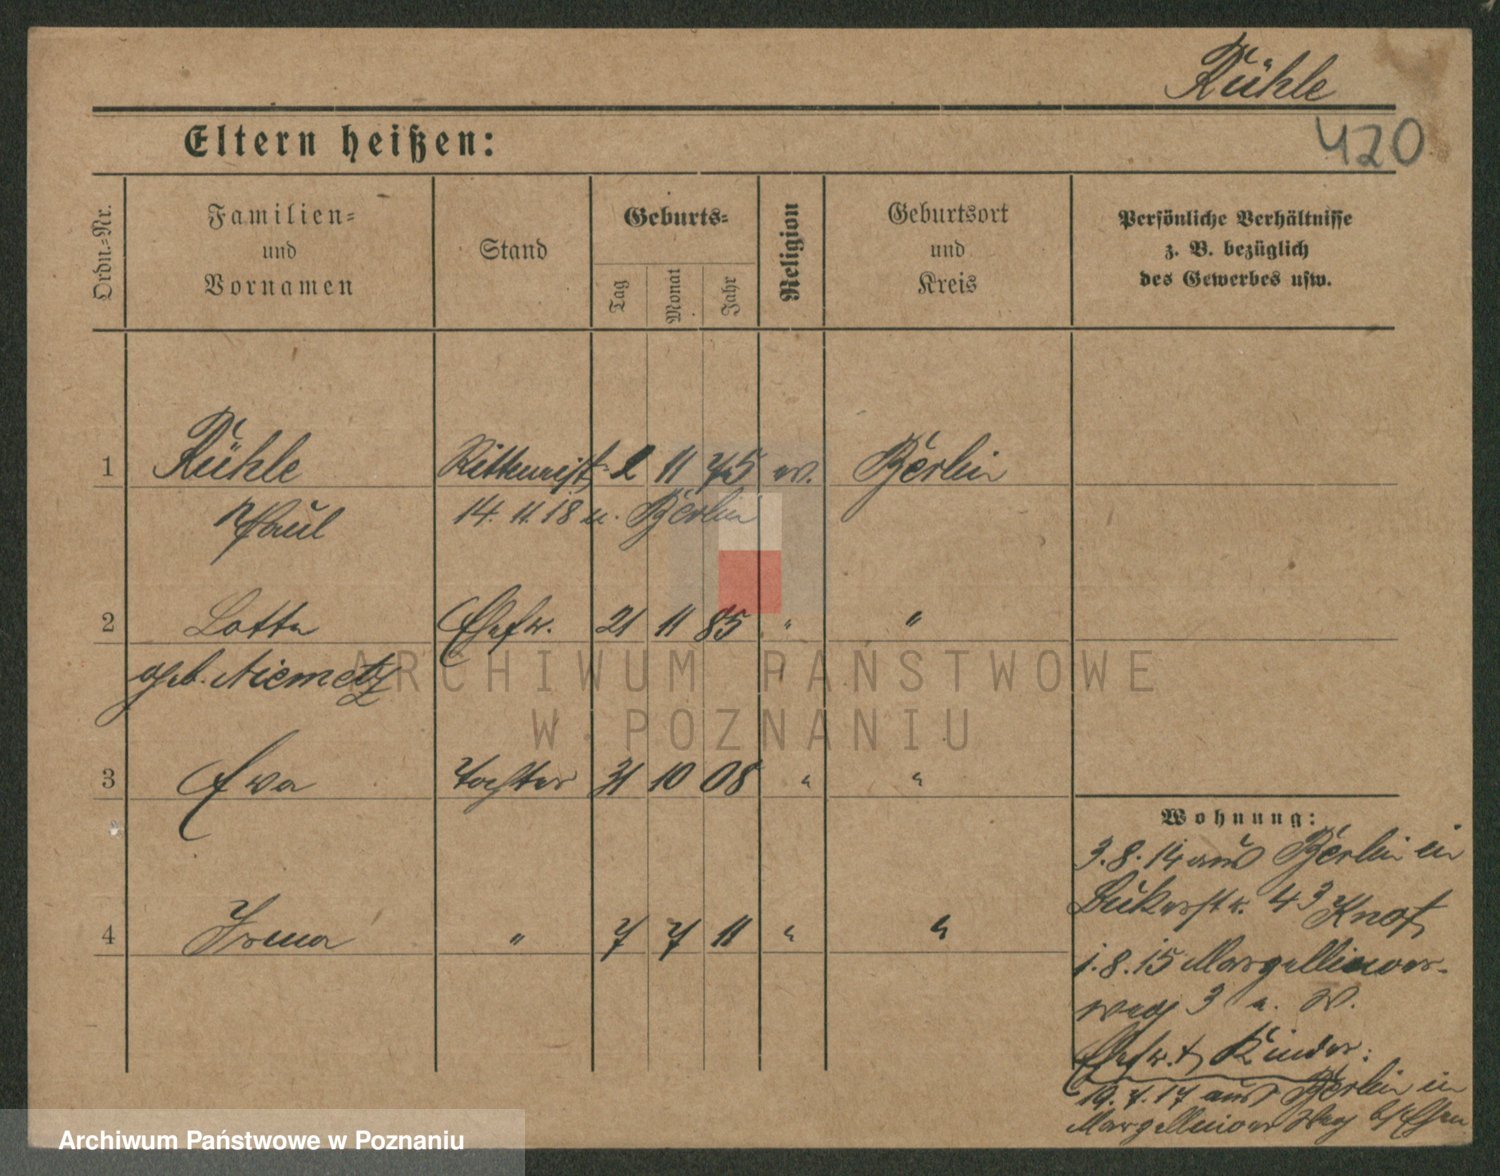 Rühle
420
Eltern heißen:
Ordn.=Nr.
Familien=
und
Vornamen
Stand
Geburts=
Tag
Monat
Jahr
Religion
Geburtsort
und
Kreis
Persönliche Verhältnisse
z. B. bezüglich
des Gewerbes usw.
1 Rühle Rittmeist. 2 11 75 ev. Berlin
Paul 14. 11. 18 n. Berlin
2 Lotte Ehefr. 21 11 85 " "
geb. Niemetz
3 Ewa Tochter 31 10 08 " "
4 Irena " 7 7 11 " "
Wohnung:
3. 8. 14 aus Berlin in
Bukerstr. 43
1. 8. 15 Margellinover-
weg 3 a. W.
Ehefr. u. Kinder:
19. 7. 17 aus Berlin in
Margellinower Weg
ARCHIWUM PAŃSTWOWE
W POZNANIU
Archiwum Państwowe w Poznaniu